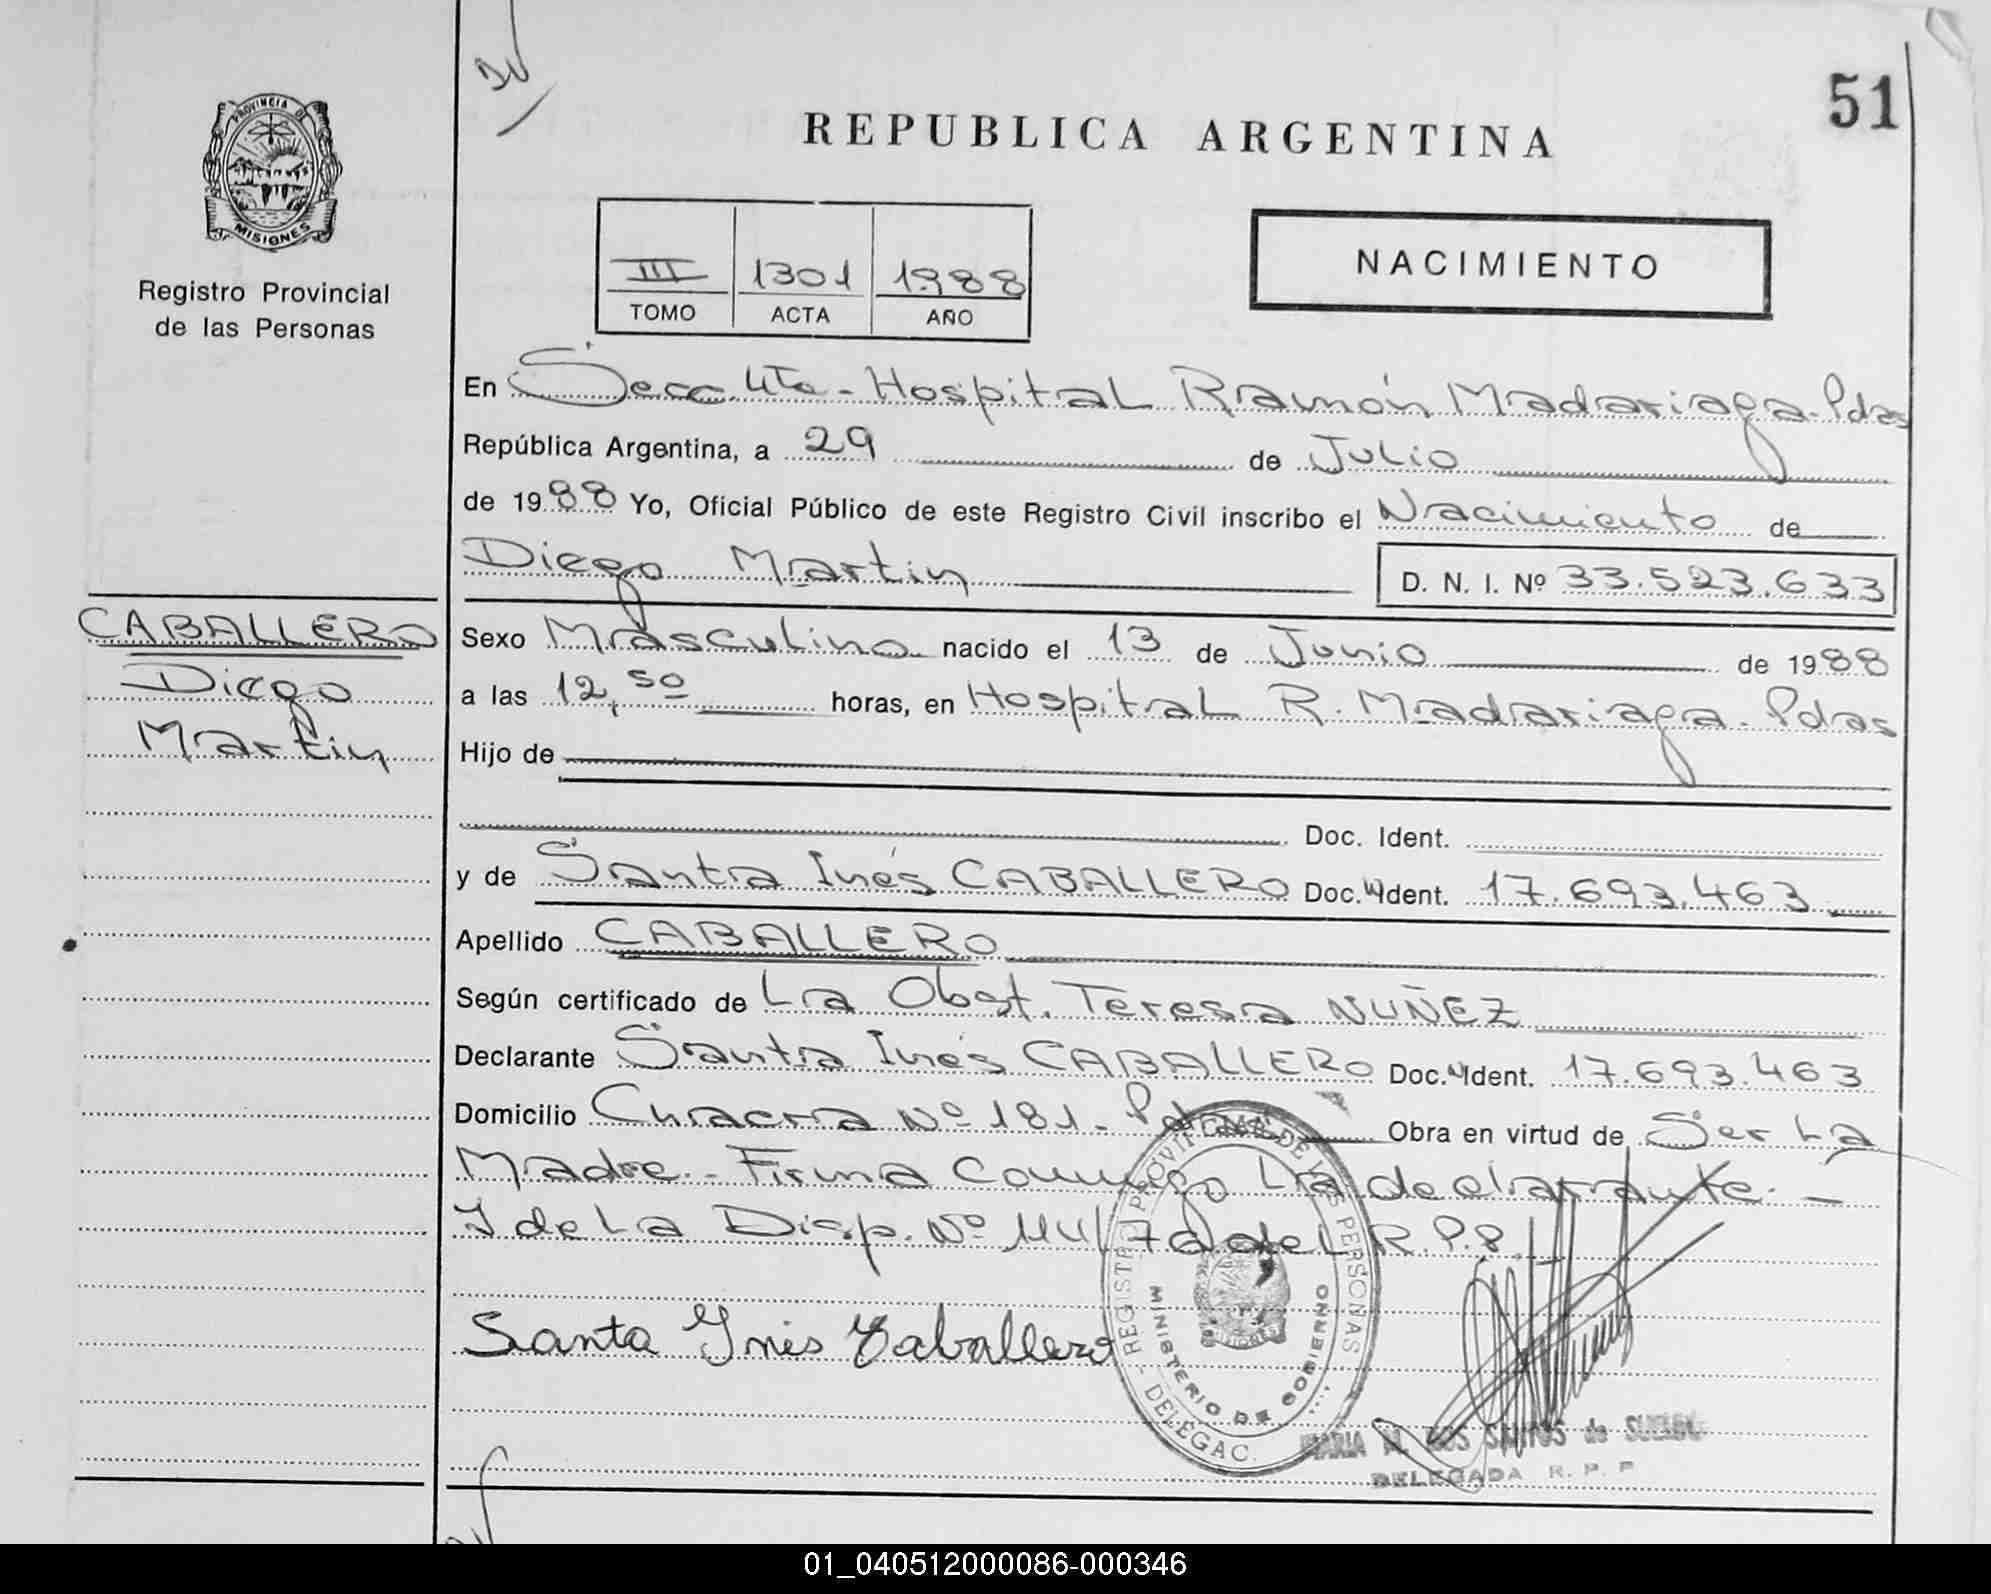 51
REPUBLICA ARGENTINA
PROVINCIA DE
MISIONES
Registro Provincial
de las Personas
III 1301 1988
TOMO ACTA AÑO
NACIMIENTO
En Secc. 4ta - Hospital Ramón Madariaga - Pdas
República Argentina, a 29 de Julio
de 1988 Yo, Oficial Público de este Registro Civil inscribo el Nacimiento de
Diego Martin D. N. I. Nº 33.523.633
CABALLERO
Diego
Martin
Sexo Masculino nacido el 13 de Junio de 1988
a las 12,50 horas, en Hospital R. Madariaga - Pdas
Hijo de
Doc. Ident.
y de Santa Inés CABALLERO Doc. Ident. 17.693.463
Apellido CABALLERO
Según certificado de La Obst. Teresa NUÑEZ
Declarante Santa Inés CABALLERO Doc. Ident. 17.693.463
Domicilio Chacra Nº 181 - Pdas Obra en virtud de Ser La
Madre - Firma Conmigo La declarante. -
de La Disp. Nº del R.P.P.
Santa Ynés Caballero
REGISTRO PROVINCIAL DE LAS PERSONAS - DELEGAC.
MINISTERIO DE GOBIERNO
MARIA DOS SANTOS de
DELEGADA R. P. P
01_040512000086-000346